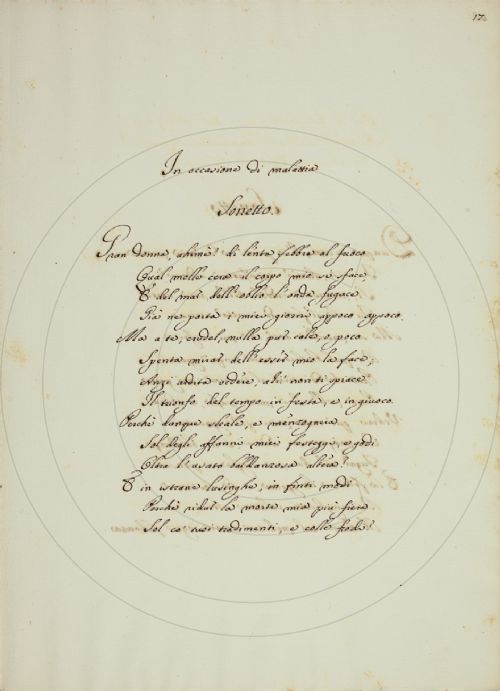 17.
In occasione di malattia
Sonetto
Gran donna, ahimè! di lenta febbre al fuoco
Qual molle cera il corpo mio si sface,
E del mar dell'oblio l'onda fugace
Già ne porta i miei giorni appoco appoco.
Ma a te, crudel, nulla può cale, o poco
Spenta mirar dell'esser mio la face;
Anzi ardita vedere, ahi! non ti spiace
Il trionfo del tempo in festa, e in giuoco.
Perchè dunque sleale, e menzognera
Sol degli affanni miei festeggi, e godi
Oltre l'usato baldanzosa altera?
E in istrane lusinghe, in finti modi
Perchè ridur la morte mia più fiera
Sol co' tuoi tradimenti, e colle frodi?